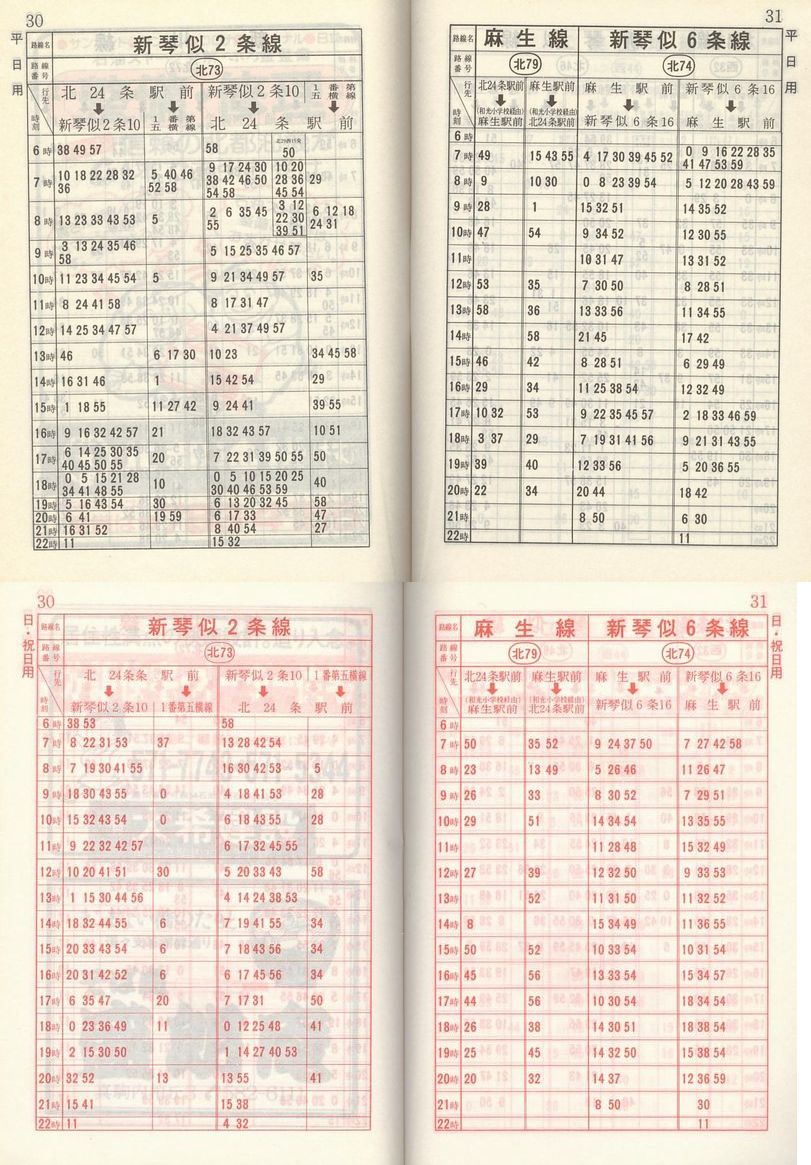 30
平日用
路線名 新琴似2条線
路線番号 北73
行先 時刻
北24条駅前 ↓ 新琴似2条10
1番第五横線
新琴似2条10 ↓ 北24条駅前
1番第五横線
6時 38 49 57 58 50
7時 10 18 22 28 32 36 5 40 46 52 58 9 17 24 30 38 42 46 50 54 58 10 20 28 36 45 54 29
8時 13 23 33 43 53 5 2 6 35 45 55 3 12 22 30 39 51 6 12 18 24 31
9時 3 13 24 35 46 58 5 15 25 35 46 57
10時 11 23 34 45 54 5 9 21 34 49 57 35
11時 8 24 41 58 8 17 31 47
12時 14 25 34 47 57 4 21 37 49 57
13時 46 6 17 30 10 23 34 45 58
14時 16 31 46 1 15 42 54 29
15時 1 18 55 11 27 42 9 24 41 39 55
16時 9 16 32 42 57 21 18 32 43 57 10 51
17時 6 14 25 30 35 40 45 50 55 20 7 22 31 39 50 55 50
18時 0 5 15 21 28 34 41 48 55 10 0 5 10 15 20 25 30 40 46 53 59 40
19時 5 16 43 54 30 6 13 20 32 45 58
20時 6 41 19 59 6 17 33 47
21時 16 31 52 8 40 54 27
22時 11 15 32
31
平日用
路線名 麻生線 新琴似6条線
路線番号 北79 北74
行先 時刻
北24条駅前 ↓ (和光小学校経由) 麻生駅前
麻生駅前 ↓ (和光小学校経由) 北24条駅前
麻生駅前 ↓ 新琴似6条16
新琴似6条16 ↓ 麻生駅前
6時
7時 49 15 43 55 4 17 30 39 45 52 0 9 16 22 28 35 41 47 53 59
8時 9 10 30 0 8 23 39 54 5 12 20 28 43 59
9時 28 1 15 32 51 14 35 52
10時 47 54 9 34 52 12 30 55
11時 10 31 47 13 31 52
12時 53 35 7 30 50 8 28 51
13時 58 36 13 33 56 11 34 55
14時 58 21 45 17 42
15時 46 42 8 28 51 6 29 49
16時 29 34 11 25 38 54 12 32 49
17時 10 32 53 9 22 35 45 57 2 18 33 46 59
18時 3 37 29 7 19 31 41 56 9 21 31 43 55
19時 39 40 12 33 56 5 20 36 55
20時 22 34 20 44 18 42
21時 8 50 6 30
22時 11
30
日・祝日用
路線名 新琴似2条線
路線番号 北73
行先 時刻
北24条条駅前 ↓ 新琴似2条10
1番第五横線
新琴似2条10 ↓ 北24条駅前
1番第五横線
6時 38 53 58
7時 8 22 31 53 37 13 28 42 54
8時 7 19 30 41 55 16 30 42 53 5
9時 18 30 43 55 0 4 18 41 53 28
10時 15 32 43 54 0 6 18 43 55 28
11時 9 22 32 42 57 6 17 32 45 55
12時 10 20 41 51 30 5 20 33 43 58
13時 1 15 30 44 56 4 14 24 38 53
14時 18 32 44 55 6 7 19 41 55 34
15時 20 33 43 54 6 7 18 43 56 34
16時 20 31 42 52 6 6 17 45 56 34
17時 6 35 47 20 7 17 31 50
18時 0 23 36 49 11 0 12 25 48 41
19時 2 15 30 50 1 14 27 40 53
20時 32 52 13 13 55 41
21時 15 41 15 38
22時 11 4 32
31
日・祝日用
路線名 麻生線 新琴似6条線
路線番号 北79 北74
行先 時刻
北24条駅前 ↓ (和光小学校経由) 麻生駅前
麻生駅前 ↓ (和光小学校経由) 北24条駅前
麻生駅前 ↓ 新琴似6条16
新琴似6条16 ↓ 麻生駅前
6時
7時 50 35 52 9 24 37 50 7 27 42 58
8時 23 13 49 5 26 46 11 26 47
9時 26 33 8 30 52 7 29 51
10時 29 51 14 34 54 13 35 55
11時 11 28 48 15 32 49
12時 27 39 12 32 50 9 33 53
13時 52 11 31 50 11 32 52
14時 8 15 34 49 11 36 55
15時 50 52 10 33 54 10 31 54
16時 45 56 13 33 54 15 34 57
17時 44 56 10 30 54 18 34 54
18時 26 38 14 30 51 18 38 54
19時 25 45 14 32 50 15 38 54
20時 20 32 14 37 12 36 59
21時 8 50 30
22時 11